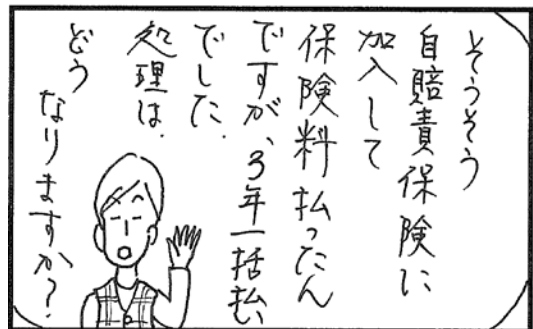 そうそう
自賠責保険に
加入して
保険料払ったん
ですが、3年一括払
でした.
処理は.
どう
なりますか?